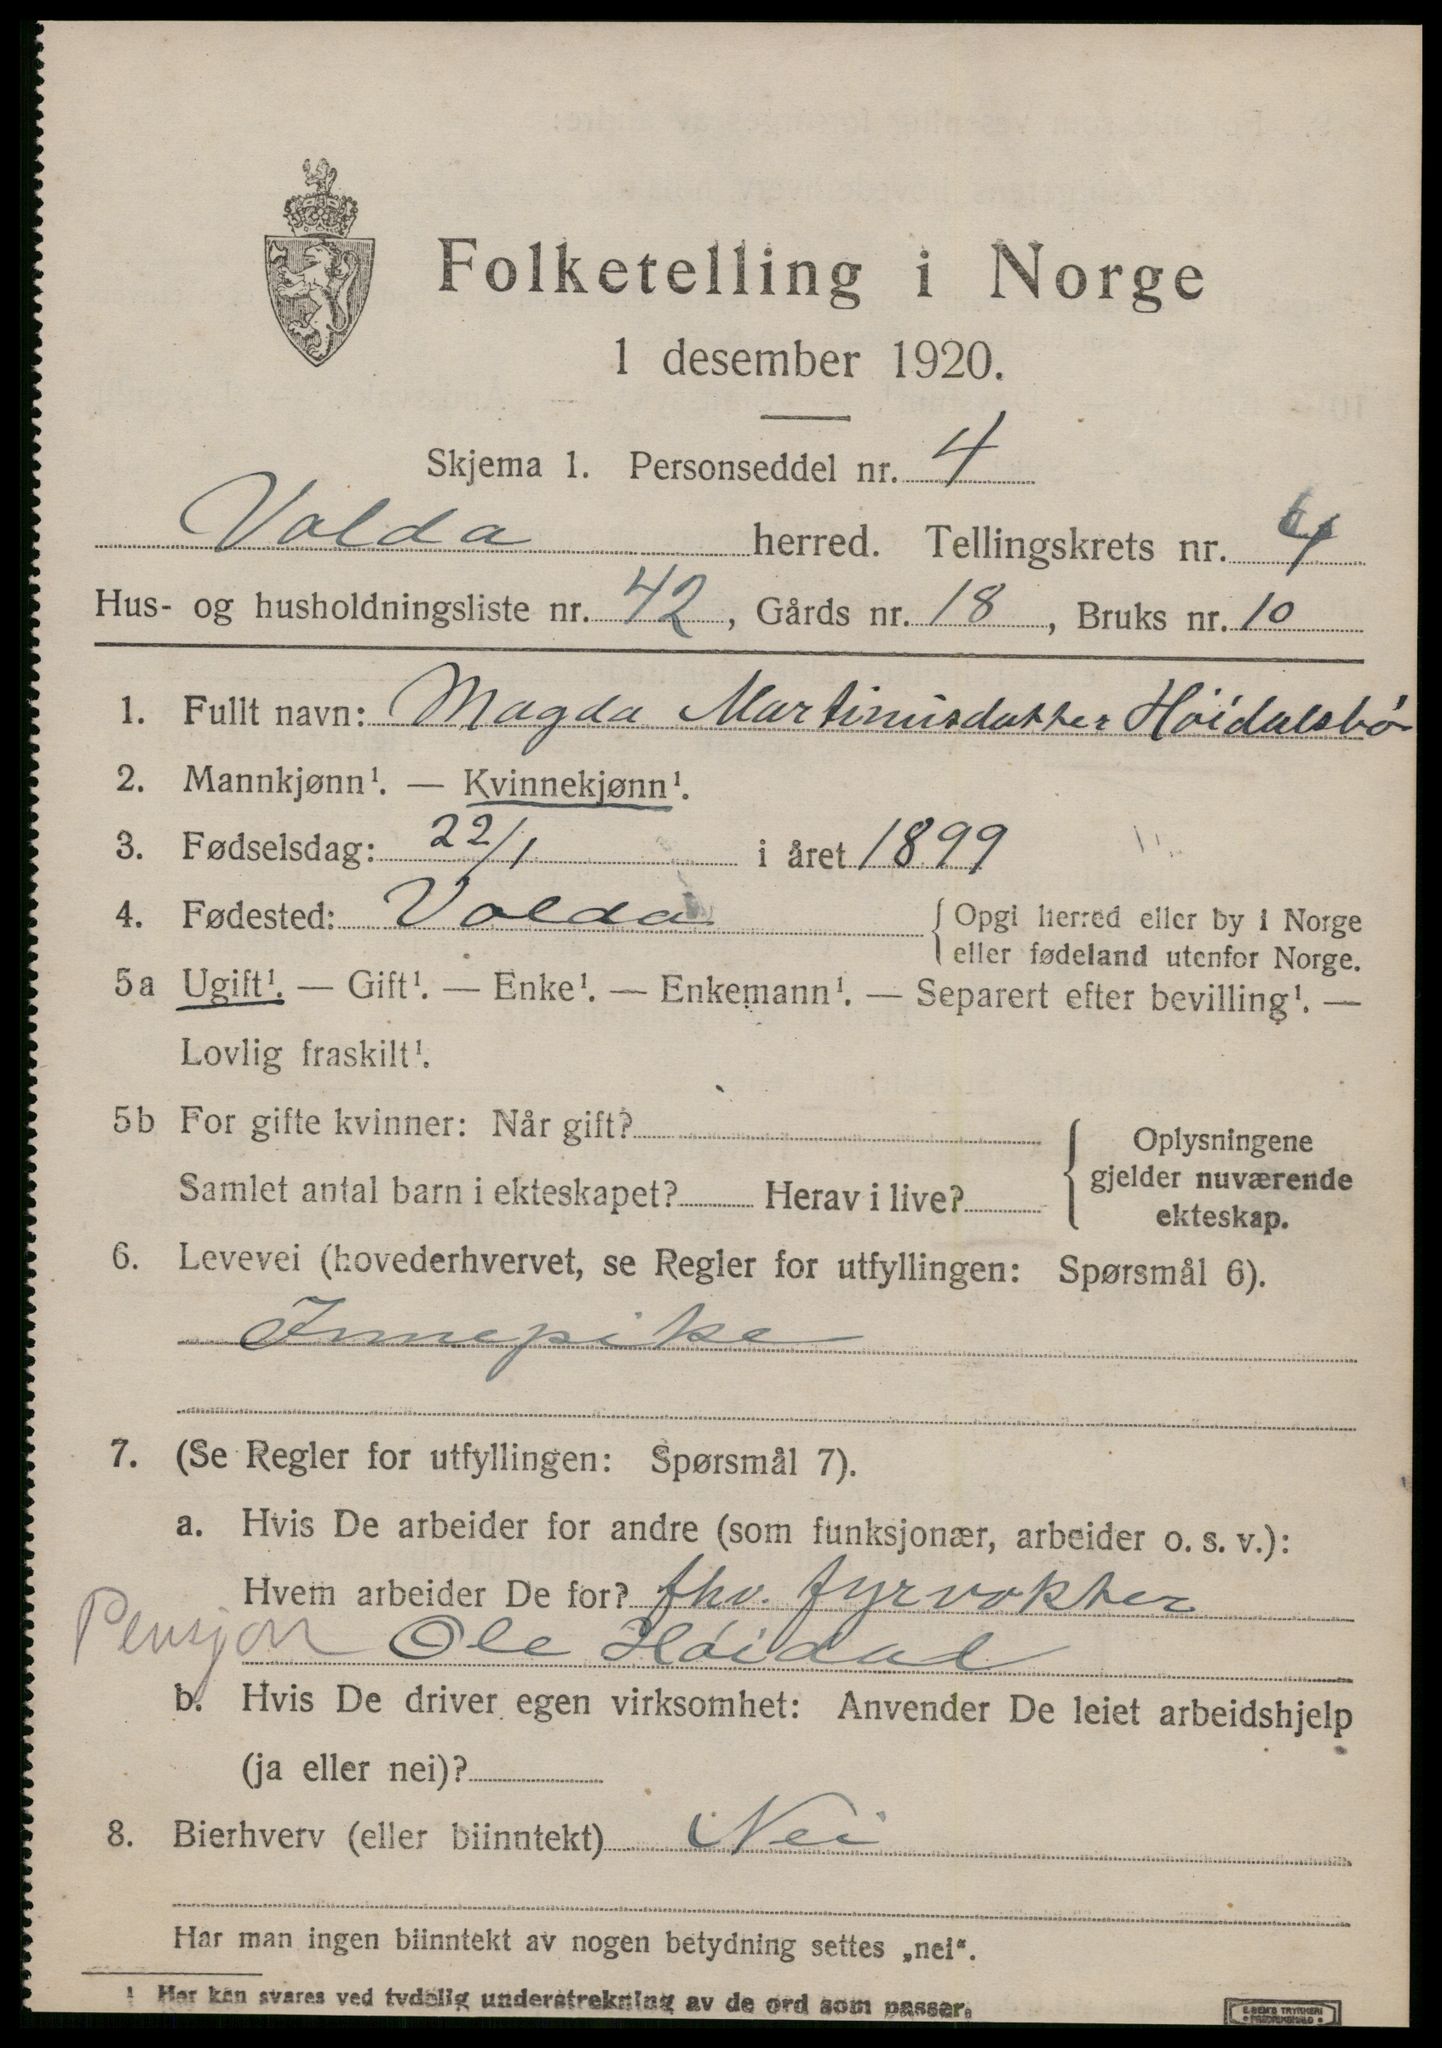 Folketelling i Norge
1 desember 1920.
Skjema 1. Personseddel nr. 4
Volda herred. Tellingskrets nr. 4
Hus- og husholdningsliste nr. 42, Gårds nr. 18, Bruks nr. 10
1. Fullt navn: Magda Martinusdatter Höidalsbö
2. Mannkjønn¹. — Kvinnekjønn¹.
3. Fødselsdag: 22/1 i året 1899
4. Fødested: Volda { Opgi herred eller by i Norge
eller fødeland utenfor Norge.
5a Ugift¹. — Gift¹. — Enke¹. — Enkemann¹. — Separert efter bevilling¹. —
Lovlig fraskilt¹.
5b For gifte kvinner: Når gift?
Samlet antal barn i ekteskapet? Herav i live?
{ Oplysningene
gjelder nuværende
ekteskap.
6. Levevei (hovederhvervet, se Regler for utfyllingen: Spørsmål 6).
Innepike
7. (Se Regler for utfyllingen: Spørsmål 7).
a. Hvis De arbeider for andre (som funksjonær, arbeider o. s. v.):
Hvem arbeider De for? fhv. fyrvokter
Pensjon Ole Höidal
b. Hvis De driver egen virksomhet: Anvender De leiet arbeidshjelp
(ja eller nei)?
8. Bierhverv (eller biinntekt) Nei
Har man ingen biinntekt av nogen betydning settes „nei“.
¹ Her kan svares ved tydelig understrekning av de ord som passer.